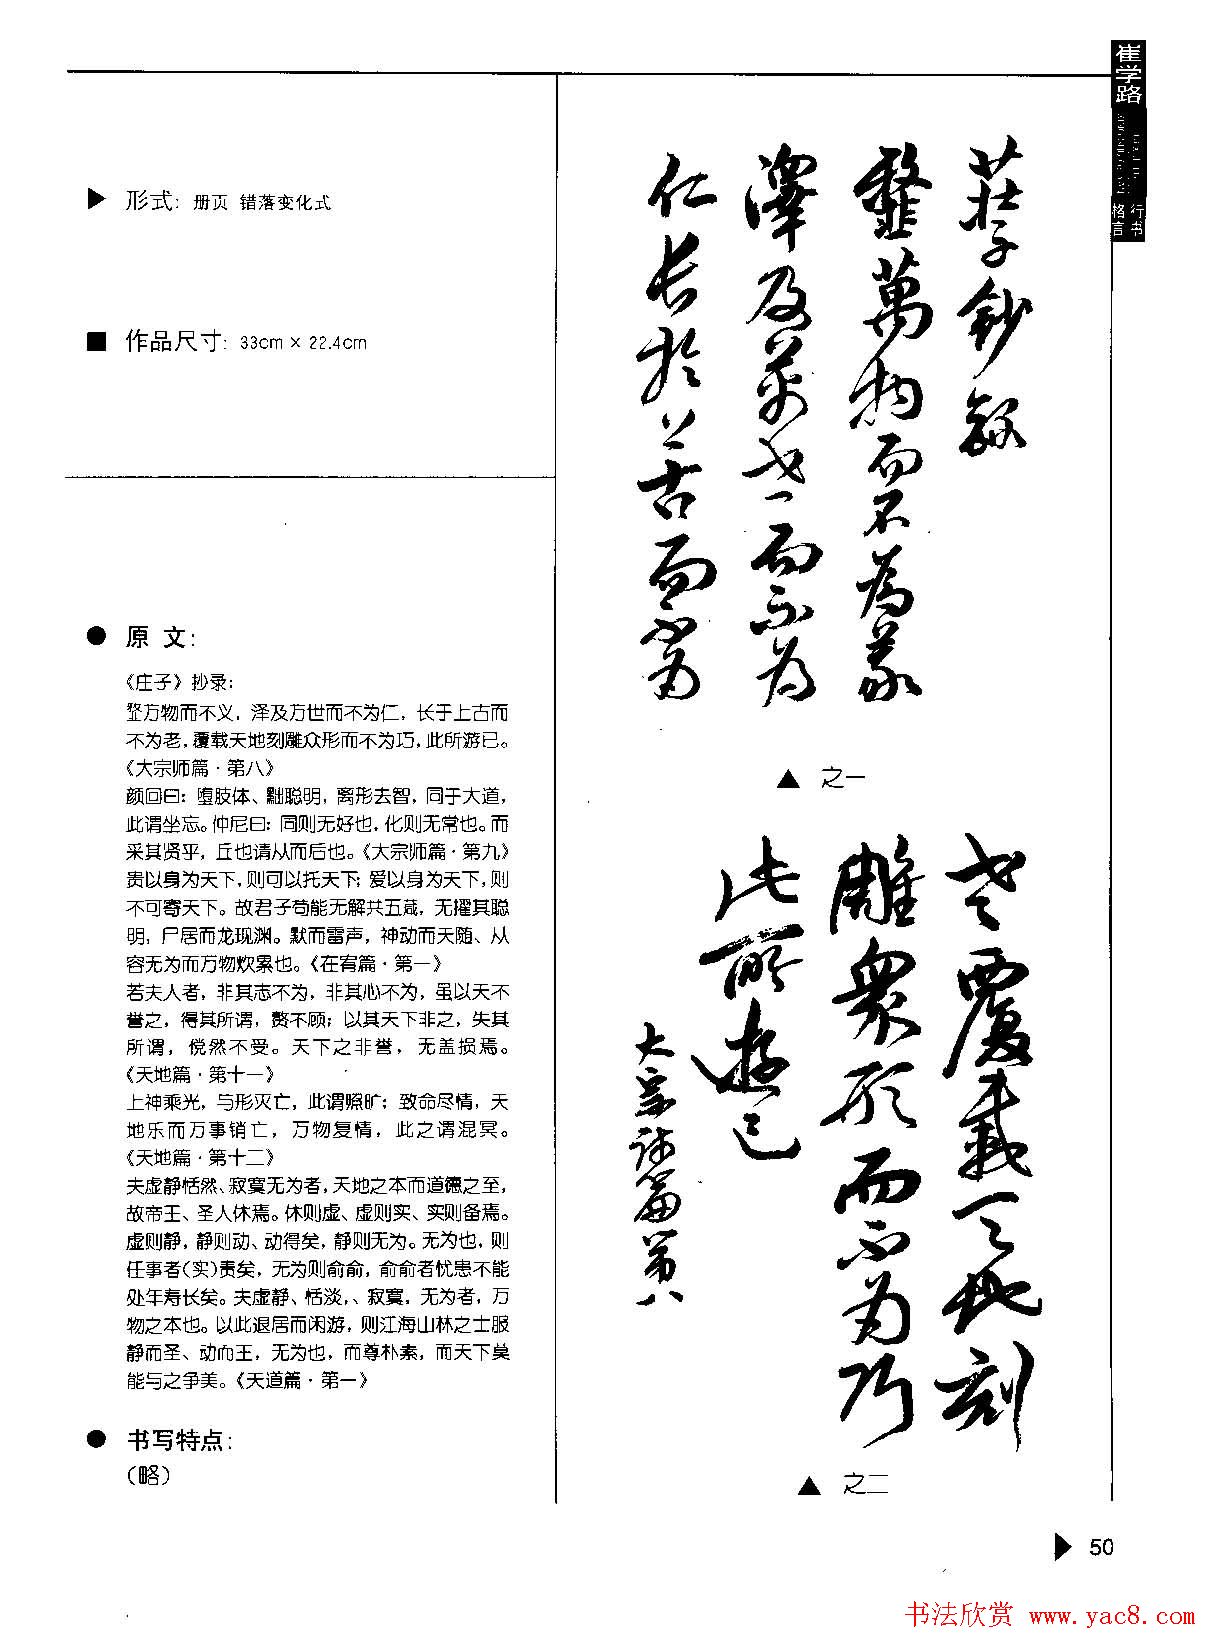 崔学路
行书
格言
▶ 形式：册页 错落变化式
■ 作品尺寸：33cm × 22.4cm
● 原 文：
《庄子》抄录：
䪠万物而不义，泽及万世而不为仁，长于上古而
不为老，覆载天地刻雕众形而不为巧，此所游已。
《大宗师篇·第八》
颜回曰：堕肢体、黜聪明，离形去智，同于大道，
此谓坐忘。仲尼曰：同则无好也，化则无常也。而
采其贤乎，丘也请从而后也。《大宗师篇·第九》
贵以身为天下，则可以托天下；爱以身为天下，则
不可寄天下。故君子苟能无解共五藏，无擢其聪
明，尸居而龙现渊。默而雷声，神动而天随、从
容无为而万物炊累也。《在宥篇·第一》
若夫人者，非其志不为，非其心不为，虽以天不
誉之，得其所谓，赘不顾；以其天下非之，失其
所谓，傥然不受。天下之非誉，无盖损焉。
《天地篇·第十一》
上神乘光，与形灭亡，此谓照旷；致命尽情，天
地乐而万事销亡，万物复情，此之谓混冥。
《天地篇·第十二》
夫虚静恬然、寂寞无为者，天地之本而道德之至，
故帝王、圣人休焉。休则虚、虚则实、实则备焉。
虚则静，静则动、动得矣，静则无为。无为也，则
任事者(实)责矣，无为则俞俞，俞俞者忧患不能
处年寿长矣。夫虚静、恬淡，、寂寞，无为者，万
物之本也。以此退居而闲游，则江海山林之士服
静而圣、动而王，无为也，而尊朴素，而天下莫
能与之争美。《天道篇·第一》
● 书写特点：
(略)
莊子鈔録
䪠萬物而不為義
澤及萬世而不為
仁長於上古而不為
▲ 之一
老覆載天地刻
雕衆形而不为巧
此所遊已
大宗师篇第八
▲ 之二
▶ 50
书法欣赏 www.yac8.com